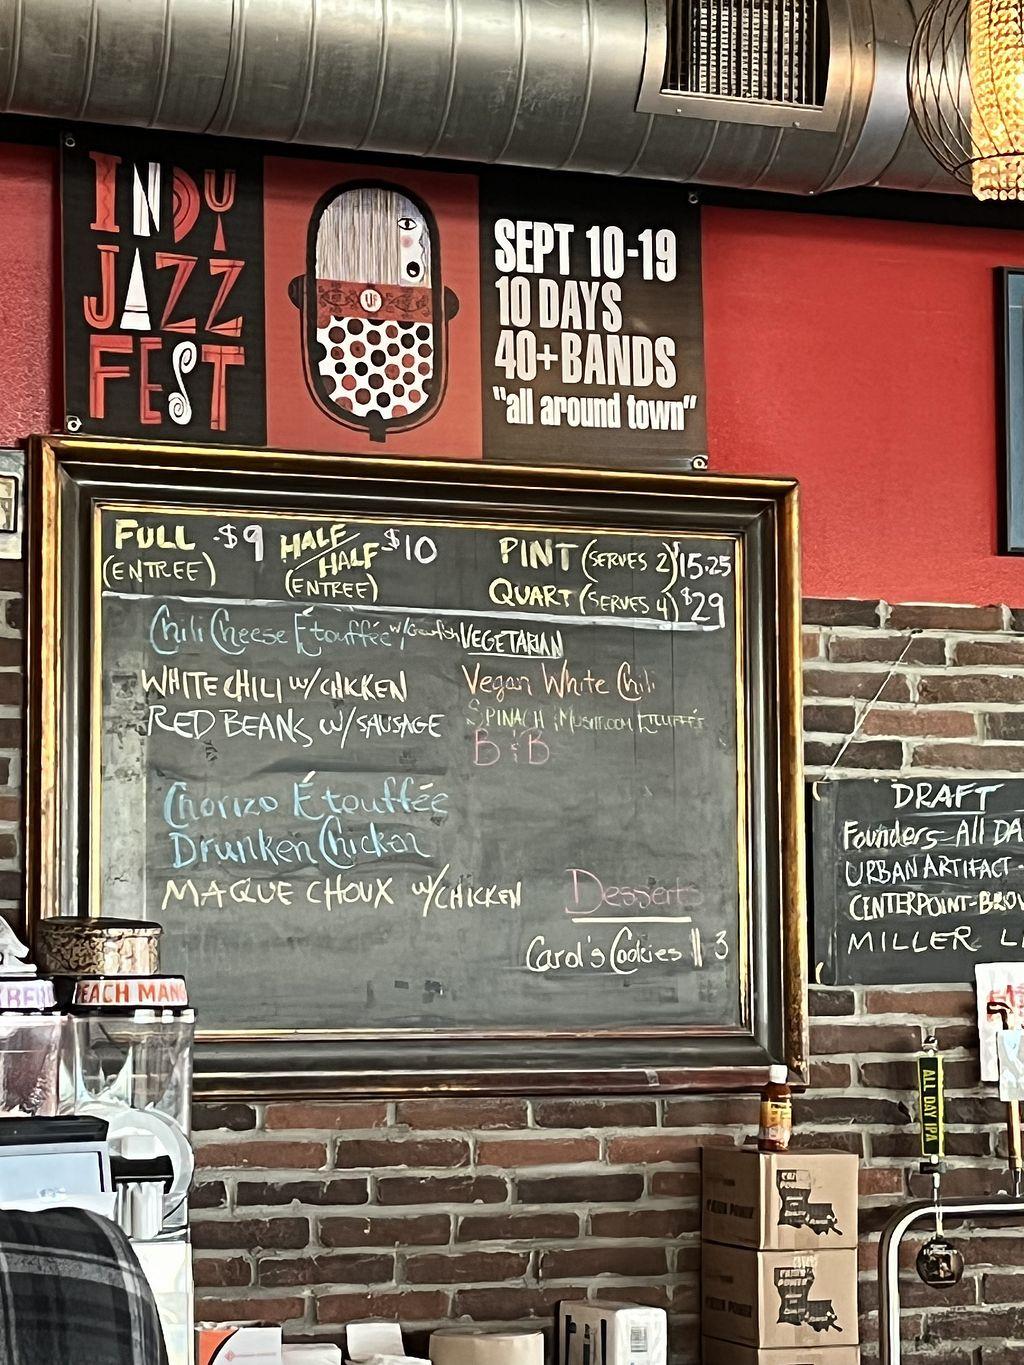 INDY
JAZZ
FEST
SEPT 10-19
10 DAYS
40+ BANDS
"all around town"
FULL -$9
(ENTREE)
HALF/HALF $10
(ENTREE)
PINT (SERVES 2) $15.25
QUART (SERVES 4) $29
Chili Cheese Étouffée w/
WHITE CHILI w/ CHICKEN
RED BEANS w/ SAUSAGE
Chorizo Étouffée
Drunken Chicken
MAQUE CHOUX w/ CHICKEN
VEGETARIAN
Vegan White Chili
SPINACH & MUSHROOM
B & B
Desserts
Carol's Cookies 3
DRAFT
Founders-All DA
URBAN ARTIFACT-
CENTERPOINT-BROW
MILLER LI
PEACH MAN
ALL DAY IPA